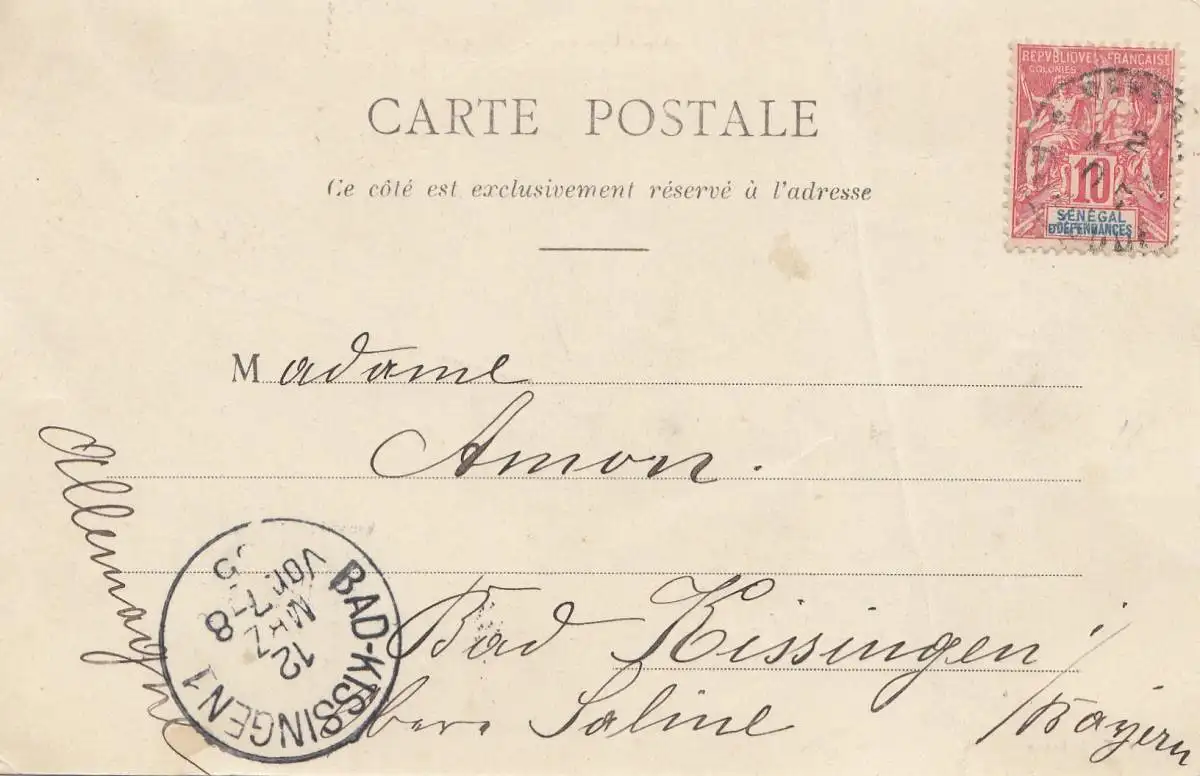 REPVBLIQVE FRANCAISE
COLONIES
10
SÉNÉGAL
ET DÉPENDANCES
CARTE POSTALE
Ce côté est exclusivement réservé à l'adresse
Madame
Amon.
Bad Kissingen
Obere Saline
/Bayern
Allemagne
BAD-KISSINGEN 1
12
MRZ
Vor. 7-8
5